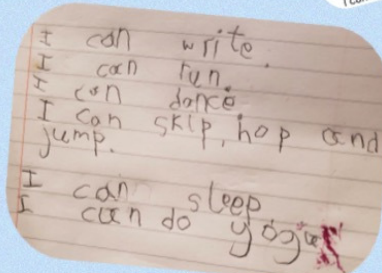 I can write.
I can run.
I can dance.
I can skip, hop and
jump.
I can sleep
I can do yoga